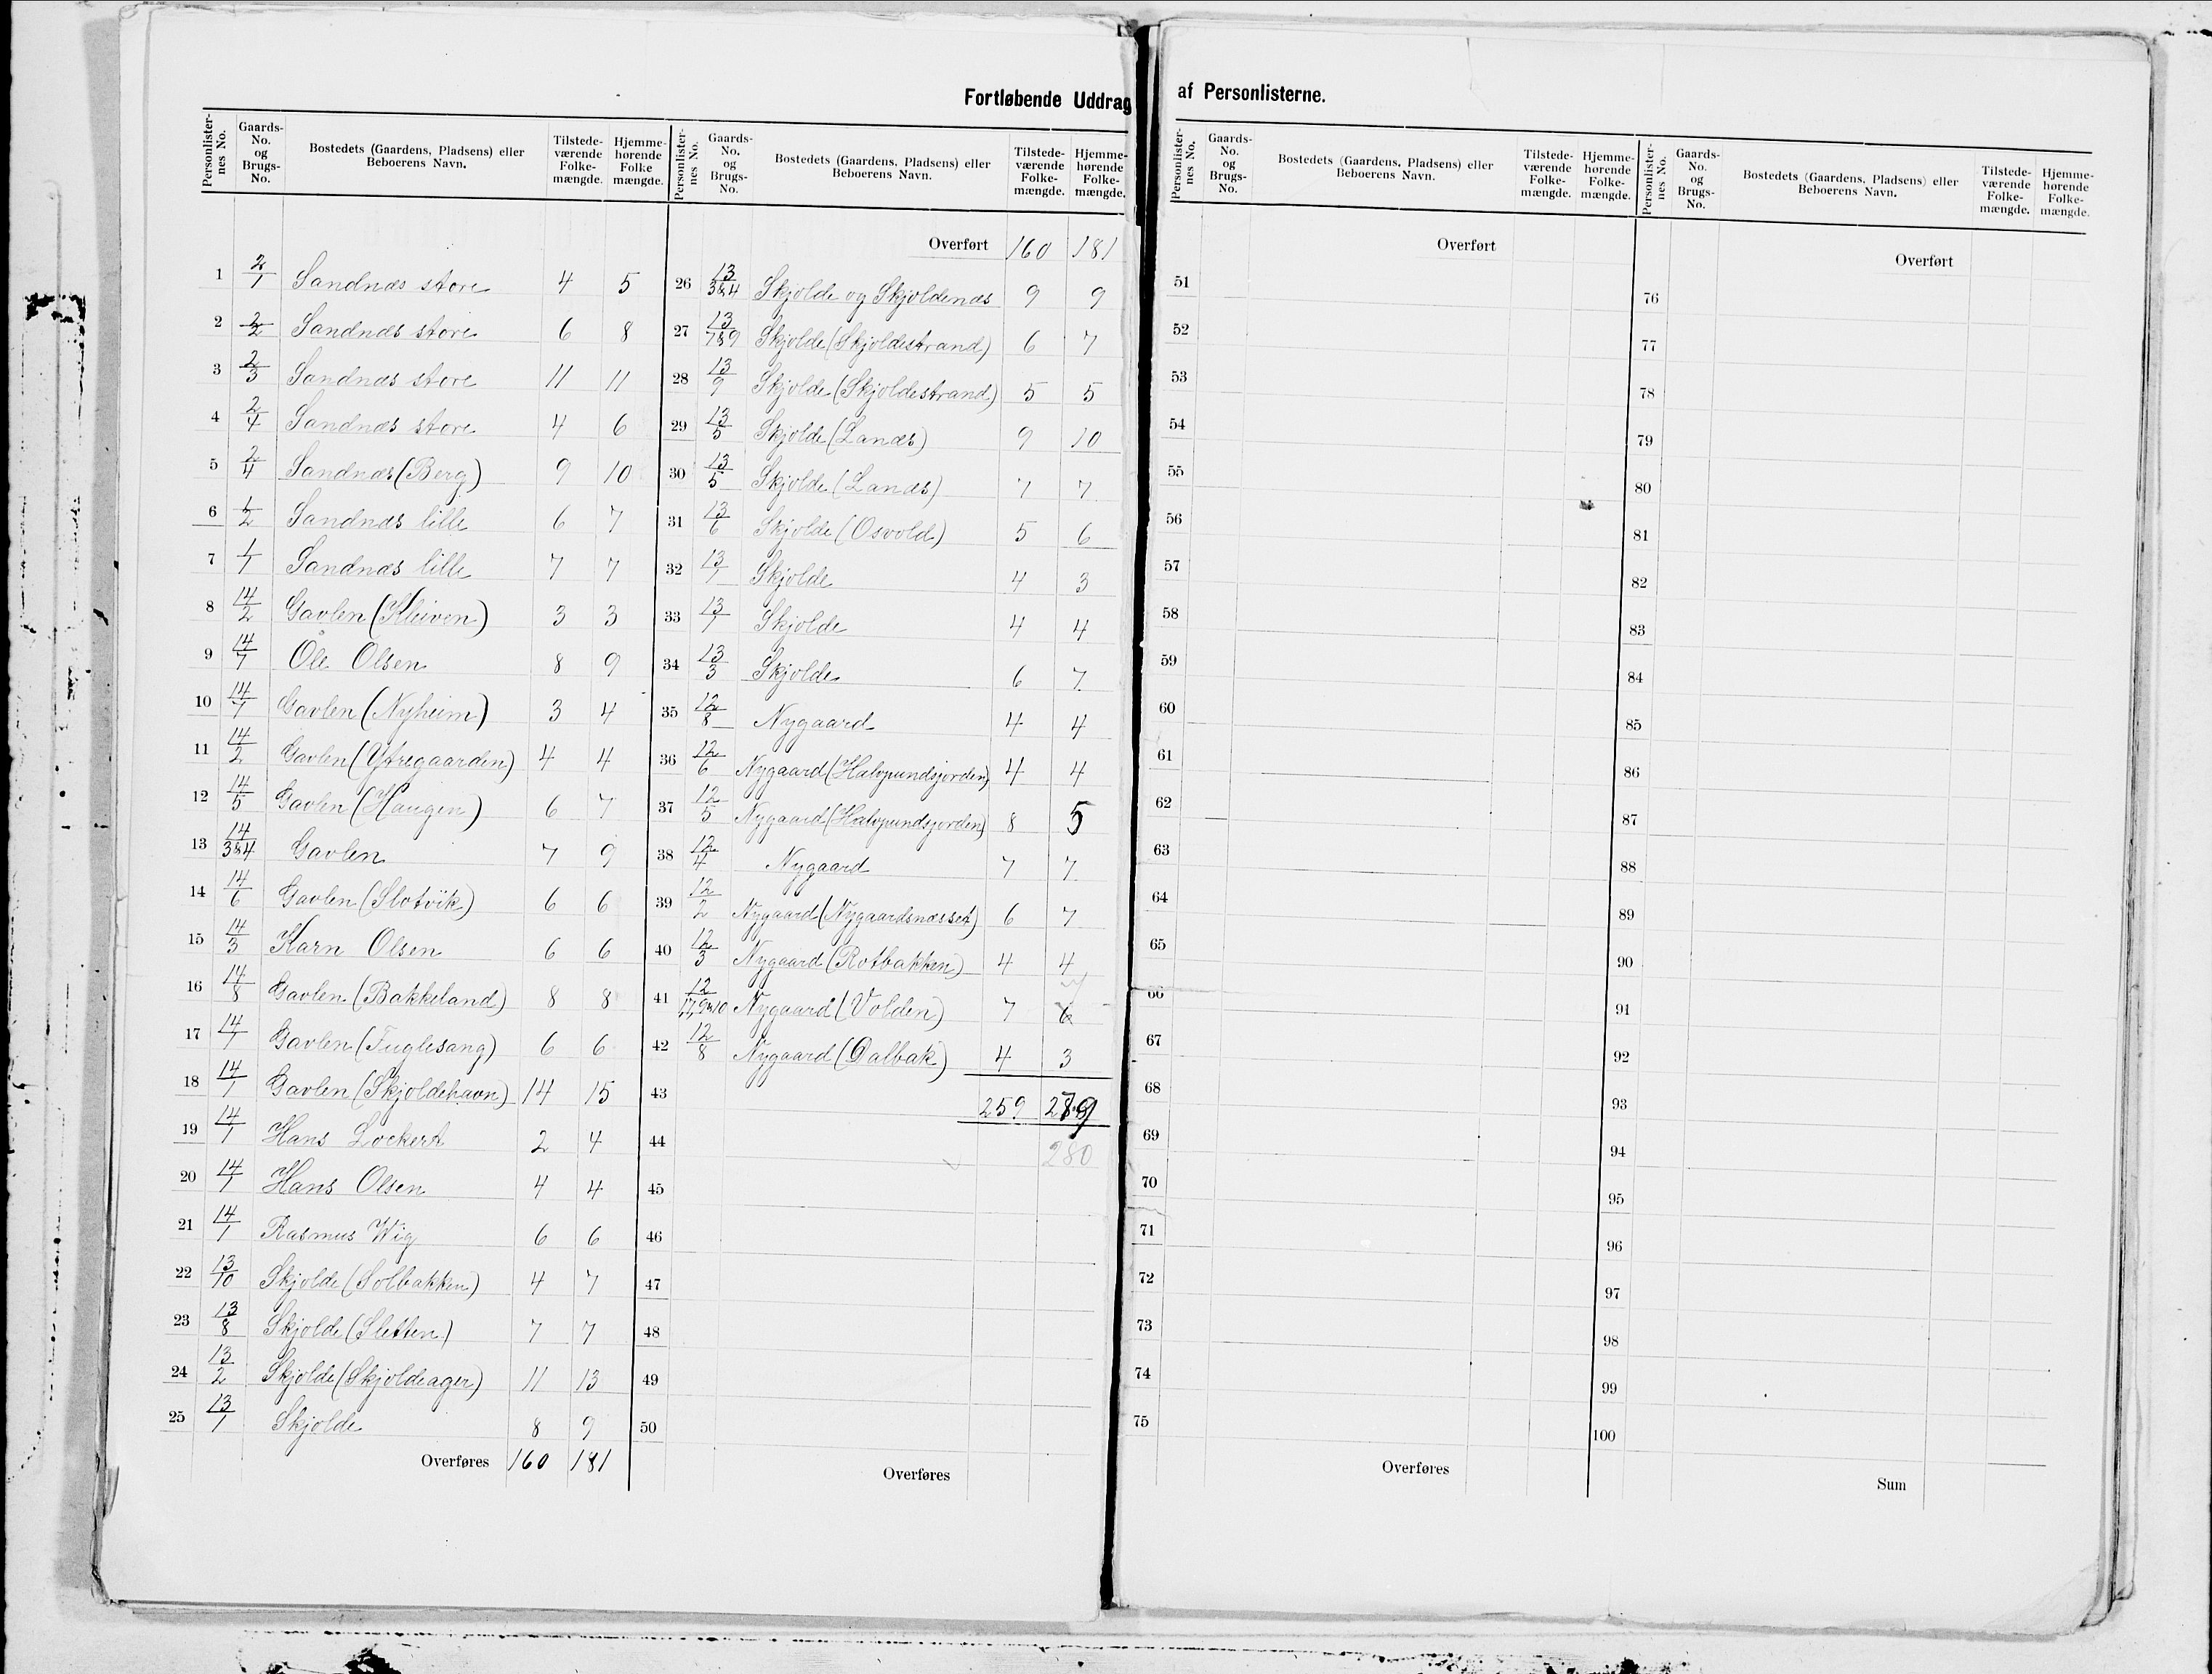 Fortløbende Uddrag af Personlisterne.
Personlisternes No. Gaards-No. og Brugs-No. Bostedets (Gaardens, Pladsens) eller Beboerens Navn. Tilstedeværende Folkemængde. Hjemmehørende Folke mængde.
1 2/1 Sandnæs store 4 5
2 2/2 Sandnæs store 6 8
3 2/3 Sandnæs store 11 11
4 2/4 Sandnæs store 4 6
5 2/4 Sandnæs (Berg) 9 10
6 1/2 Sandnæs lille 6 7
7 1/1 Sandnæs lille 7 7
8 14/2 Gavlen (Kleiven) 3 3
9 14/7 Ole Olsen 8 9
10 14/1 Gavlen (Nyheim) 3 4
11 14/2 Gavlen (Ytregaarden) 4 4
12 14/5 Gavlen (Haugen) 6 7
13 14/3&4 Gavlen 7 9
14 14/6 Gavlen (Slotvik) 6 6
15 14/3 Karn Olsen 6 6
16 14/8 Gavlen (Bakkeland) 8 8
17 14/1 Gavlen (Fuglesang) 6 6
18 14/1 Gavlen (Skjoldehavn) 14 15
19 14/1 Hans Lockert 2 4
20 14/1 Hans Olsen 4 4
21 14/1 Rasmus Wig 6 6
22 13/10 Skjolde (Solbakken) 4 7
23 13/8 Skjolde (Sletten) 7 7
24 13/2 Skjolde (Skjoldeager) 11 13
25 13/1 Skjolde 8 9
Overføres 160 181
Personlisternes No. Gaards-No. og Brugs-No. Bostedets (Gaardens, Pladsens) eller Beboerens Navn. Tilstedeværende Folkemængde. Hjemmehørende Folkemængde.
Overført 160 181
26 13/3&4 Skjolde og Skjoldenæs 9 9
27 13/7&9 Skjolde (Skjoldestrand) 6 7
28 13/9 Skjolde (Skjoldestrand) 5 5
29 13/5 Skjolde (Lanæs) 9 10
30 13/5 Skjolde (Lanæs) 7 7
31 13/6 Skjolde (Osvold) 5 6
32 13/1 Skjolde 4 3
33 13/1 Skjolde 4 4
34 13/3 Skjolde 6 7
35 12/8 Nygaard 4 4
36 12/6 Nygaard (Halvpundsjorden) 4 4
37 12/5 Nygaard (Halvpundsjorden) 8 5
38 12/4 Nygaard 7 7
39 12/2 Nygaard (Nygaardsnæsset) 6 7
40 12/3 Nygaard (Rotbakken) 4 4
41 Nygaard (Volden) 7 6
42 12/8 Nygaard (Dalbak) 4 3
43 259 279
44 280
45
46
47
48
49
50
Overføres
Personlisternes No. Gaards-No. og Brugs-No. Bostedets (Gaardens, Pladsens) eller Beboerens Navn. Tilstedeværende Folkemængde. Hjemmehørende Folkemængde.
Overført
51
52
53
54
55
56
57
58
59
60
61
62
63
64
65
66
67
68
69
70
71
72
73
74
75
Overføres
Personlisternes No. Gaards-No. og Brugs-No. Bostedets (Gaardens, Pladsens) eller Beboerens Navn. Tilstedeværende Folkemængde. Hjemmehørende Folkemængde.
Overført
76
77
78
79
80
81
82
83
84
85
86
87
88
89
90
91
92
93
94
95
96
97
98
99
100
Sum